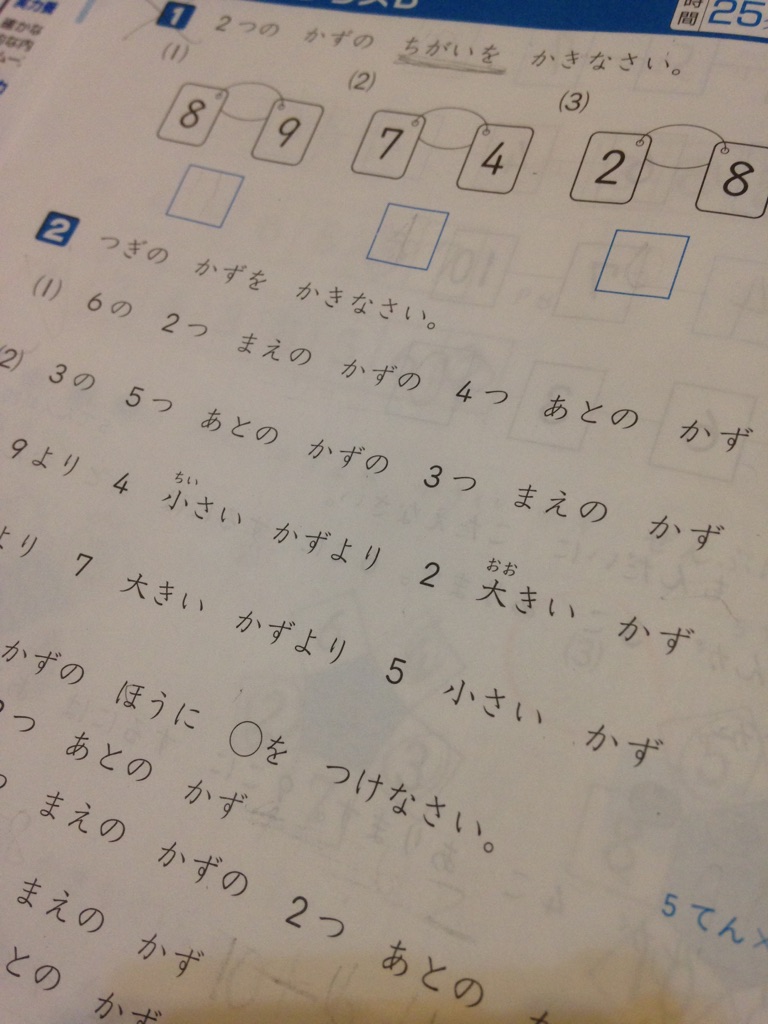 時間 25
1 2つの かずの ちがいを かきなさい。
(1) (2) (3)
8 9 7 4 2 8
2 つぎの かずを かきなさい。
(1) 6の 2つ まえの かずの 4つ あとの かず
(2) 3の 5つ あとの かずの 3つ まえの かず
9より 4 小さい かずより 2 大きい かず
ちい おお
より 7 大きい かずより 5 小さい かず
かずの ほうに ○を つけなさい。
つ あとの かず
まえの かずの 2つ あとの か
まえの かず
との かず
5てん×